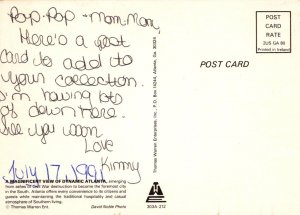 Pop-Pop + Mom-Mom
Here's a post
card to add to
your collection.
I'm having lots
of fun down here.
See you soon
Love
Kimmy
July 17, 1991
A MAGNIFICENT VIEW OF DYNAMIC ATLANTA, emerging
from ashes of Civil War destruction to become the foremost city
in the South. Atlanta offers every convenience to its citizens and
guests while maintaining the traditional hospitality and casual
atmosphere of Southern living.
© Thomas Warren Ent. David Noble Photo
Thomas Warren Enterprises, Inc., P.O. Box 14244, Atlanta, Ga. 30324
POST CARD
303A-212
POST
CARD
RATE
2US GA 90
Printed in Ireland